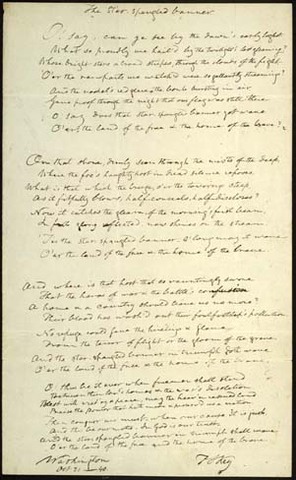 The Star-spangled banner
O! say, can ye see by the dawn's early light
What so proudly we hail'd by the twilight's last gleaming?
Whose bright stars & broad stripes, through the clouds of the fight,
O'er the ramparts we watch'd were so gallantly streaming?
And the rocket's red glare, the bomb bursting in air
Gave proof through the night that our flag was still there
O! say, does that star-spangled banner yet wave
O'er the land of the free & the home of the brave?
On that shore, dimly seen through the mists of the deep,
Where the foe's haughty host in dread silence reposes
What is that which the breeze, o'er the towering steep
As it fitfully blows, half conceals, half discloses?
Now it catches the gleam of the morning's first beam,
In glory reflected, now shines on the stream
'Tis the star-spangled banner O! long may it wave
O'er the land of the free & the home of the brave
And where is that host that so vauntingly swore
That the havoc of war & the battle's confusion
A home & a Country should leave us no more?
Their blood has wash'd out their foul footsteps' pollution
No refuge could save the hireling & slave
From the terror of flight or the gloom of the grave
And the star-spangled banner in triumph doth wave
O'er the land of the free & the home of the brave
O! thus be it ever when freemen shall stand
Between their lov'd homes & the war's desolation
Blest with vict'ry & peace, may the heav'n-rescued land
Praise the power that hath made & preserved us a nation
Then conquer we must, when our cause it is just
And this be our motto, In God is our trust
And the star-spangled banner in triumph shall wave
O'er the land of the free and the home of the brave
Washington
Oct 21 - 40
F S Key